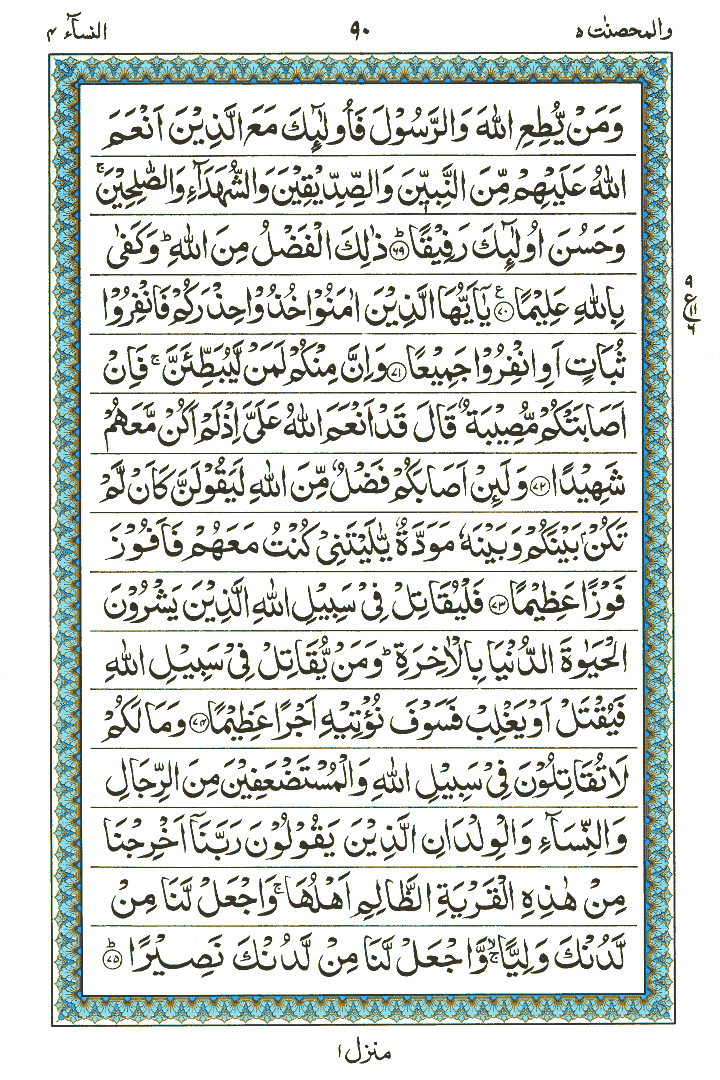 والمحصنٰت ۵ ۹۰ النسآء ۴
وَمَنْ يُّطِعِ اللّٰهَ وَالرَّسُوْلَ فَاُولٰٓئِكَ مَعَ الَّذِيْنَ اَنْعَمَ
اللّٰهُ عَلَيْهِمْ مِّنَ النَّبِيّٖنَ وَالصِّدِّيْقِيْنَ وَالشُّهَدَآءِ وَالصّٰلِحِيْنَ ۚ
وَحَسُنَ اُولٰٓئِكَ رَفِيْقًا ؕ﴿۶۹﴾ ذٰلِكَ الْفَضْلُ مِنَ اللّٰهِ ؕ وَكَفٰى
بِاللّٰهِ عَلِيْمًا ﴿۷۰﴾ ع يٰۤاَيُّهَا الَّذِيْنَ اٰمَنُوْا خُذُوْا حِذْرَكُمْ فَانْفِرُوْا
۹ ع ۱۱ ۶
ثُبَاتٍ اَوِ انْفِرُوْا جَمِيْعًا ﴿۷۱﴾ وَاِنَّ مِنْكُمْ لَمَنْ لَّيُبَطِّئَنَّ ۚ فَاِنْ
اَصَابَتْكُمْ مُّصِيْبَةٌ قَالَ قَدْ اَنْعَمَ اللّٰهُ عَلَىَّ اِذْ لَمْ اَكُنْ مَّعَهُمْ
شَهِيْدًا ﴿۷۲﴾ وَلَئِنْ اَصَابَكُمْ فَضْلٌ مِّنَ اللّٰهِ لَيَقُوْلَنَّ كَاَنْ لَّمْ
تَكُنْۢ بَيْنَكُمْ وَبَيْنَهٗ مَوَدَّةٌ يّٰلَيْتَنِىْ كُنْتُ مَعَهُمْ فَاَفُوْزَ
فَوْزًا عَظِيْمًا ﴿۷۳﴾ فَلْيُقَاتِلْ فِىْ سَبِيْلِ اللّٰهِ الَّذِيْنَ يَشْرُوْنَ
الْحَيٰوةَ الدُّنْيَا بِالْاٰخِرَةِ ؕ وَمَنْ يُّقَاتِلْ فِىْ سَبِيْلِ اللّٰهِ
فَيُقْتَلْ اَوْ يَغْلِبْ فَسَوْفَ نُؤْتِيْهِ اَجْرًا عَظِيْمًا ﴿۷۴﴾ وَمَا لَكُمْ
لَا تُقَاتِلُوْنَ فِىْ سَبِيْلِ اللّٰهِ وَالْمُسْتَضْعَفِيْنَ مِنَ الرِّجَالِ
وَالنِّسَآءِ وَالْوِلْدَانِ الَّذِيْنَ يَقُوْلُوْنَ رَبَّنَاۤ اَخْرِجْنَا
مِنْ هٰذِهِ الْقَرْيَةِ الظَّالِمِ اَهْلُهَا ۚ وَاجْعَلْ لَّنَا مِنْ
لَّدُنْكَ وَلِيًّا ۙۚ وَّاجْعَلْ لَّنَا مِنْ لَّدُنْكَ نَصِيْرًا ؕ﴿۷۵﴾
منزل ۱